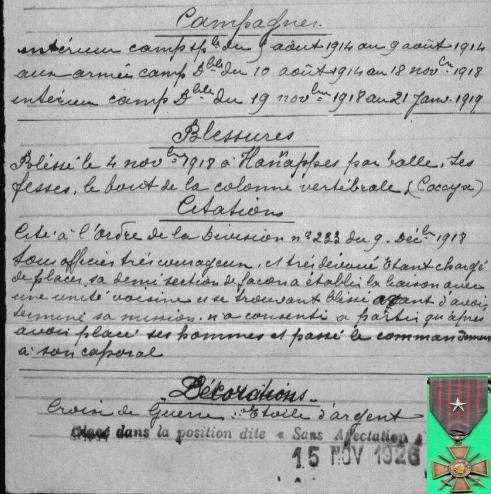 Campagnes.
intérieur camp sple du 9 août 1914 au 9 août 1914
aux armées camp Dble du 10 août 1914 au 18 novbre 1918
intérieur camp Dble du 19 novbre 1918 au 21 Janv. 1919
Blessures
Blessé le 4 novbre 1918 à Hannappes par balle, les
fesses, le bout de la colonne vertébrale (Coccyx)
Citations
Cité à l'Ordre de la Division n° 233 du 9. Décbre 1918
sous officier très courageux, et très dévoué Etant chargé
de placer sa demi section de façon à établir la liaison avec
une unité voisine et se trouvant blessé avant d'avoir
terminé sa mission. n'a consenti à partir qu'après
avoir placé ses hommes et passé le commandement
à son caporal
Décorations
Croix de Guerre Etoile d'argent
dans la position dite « Sans Affectation »
15 NOV 1926